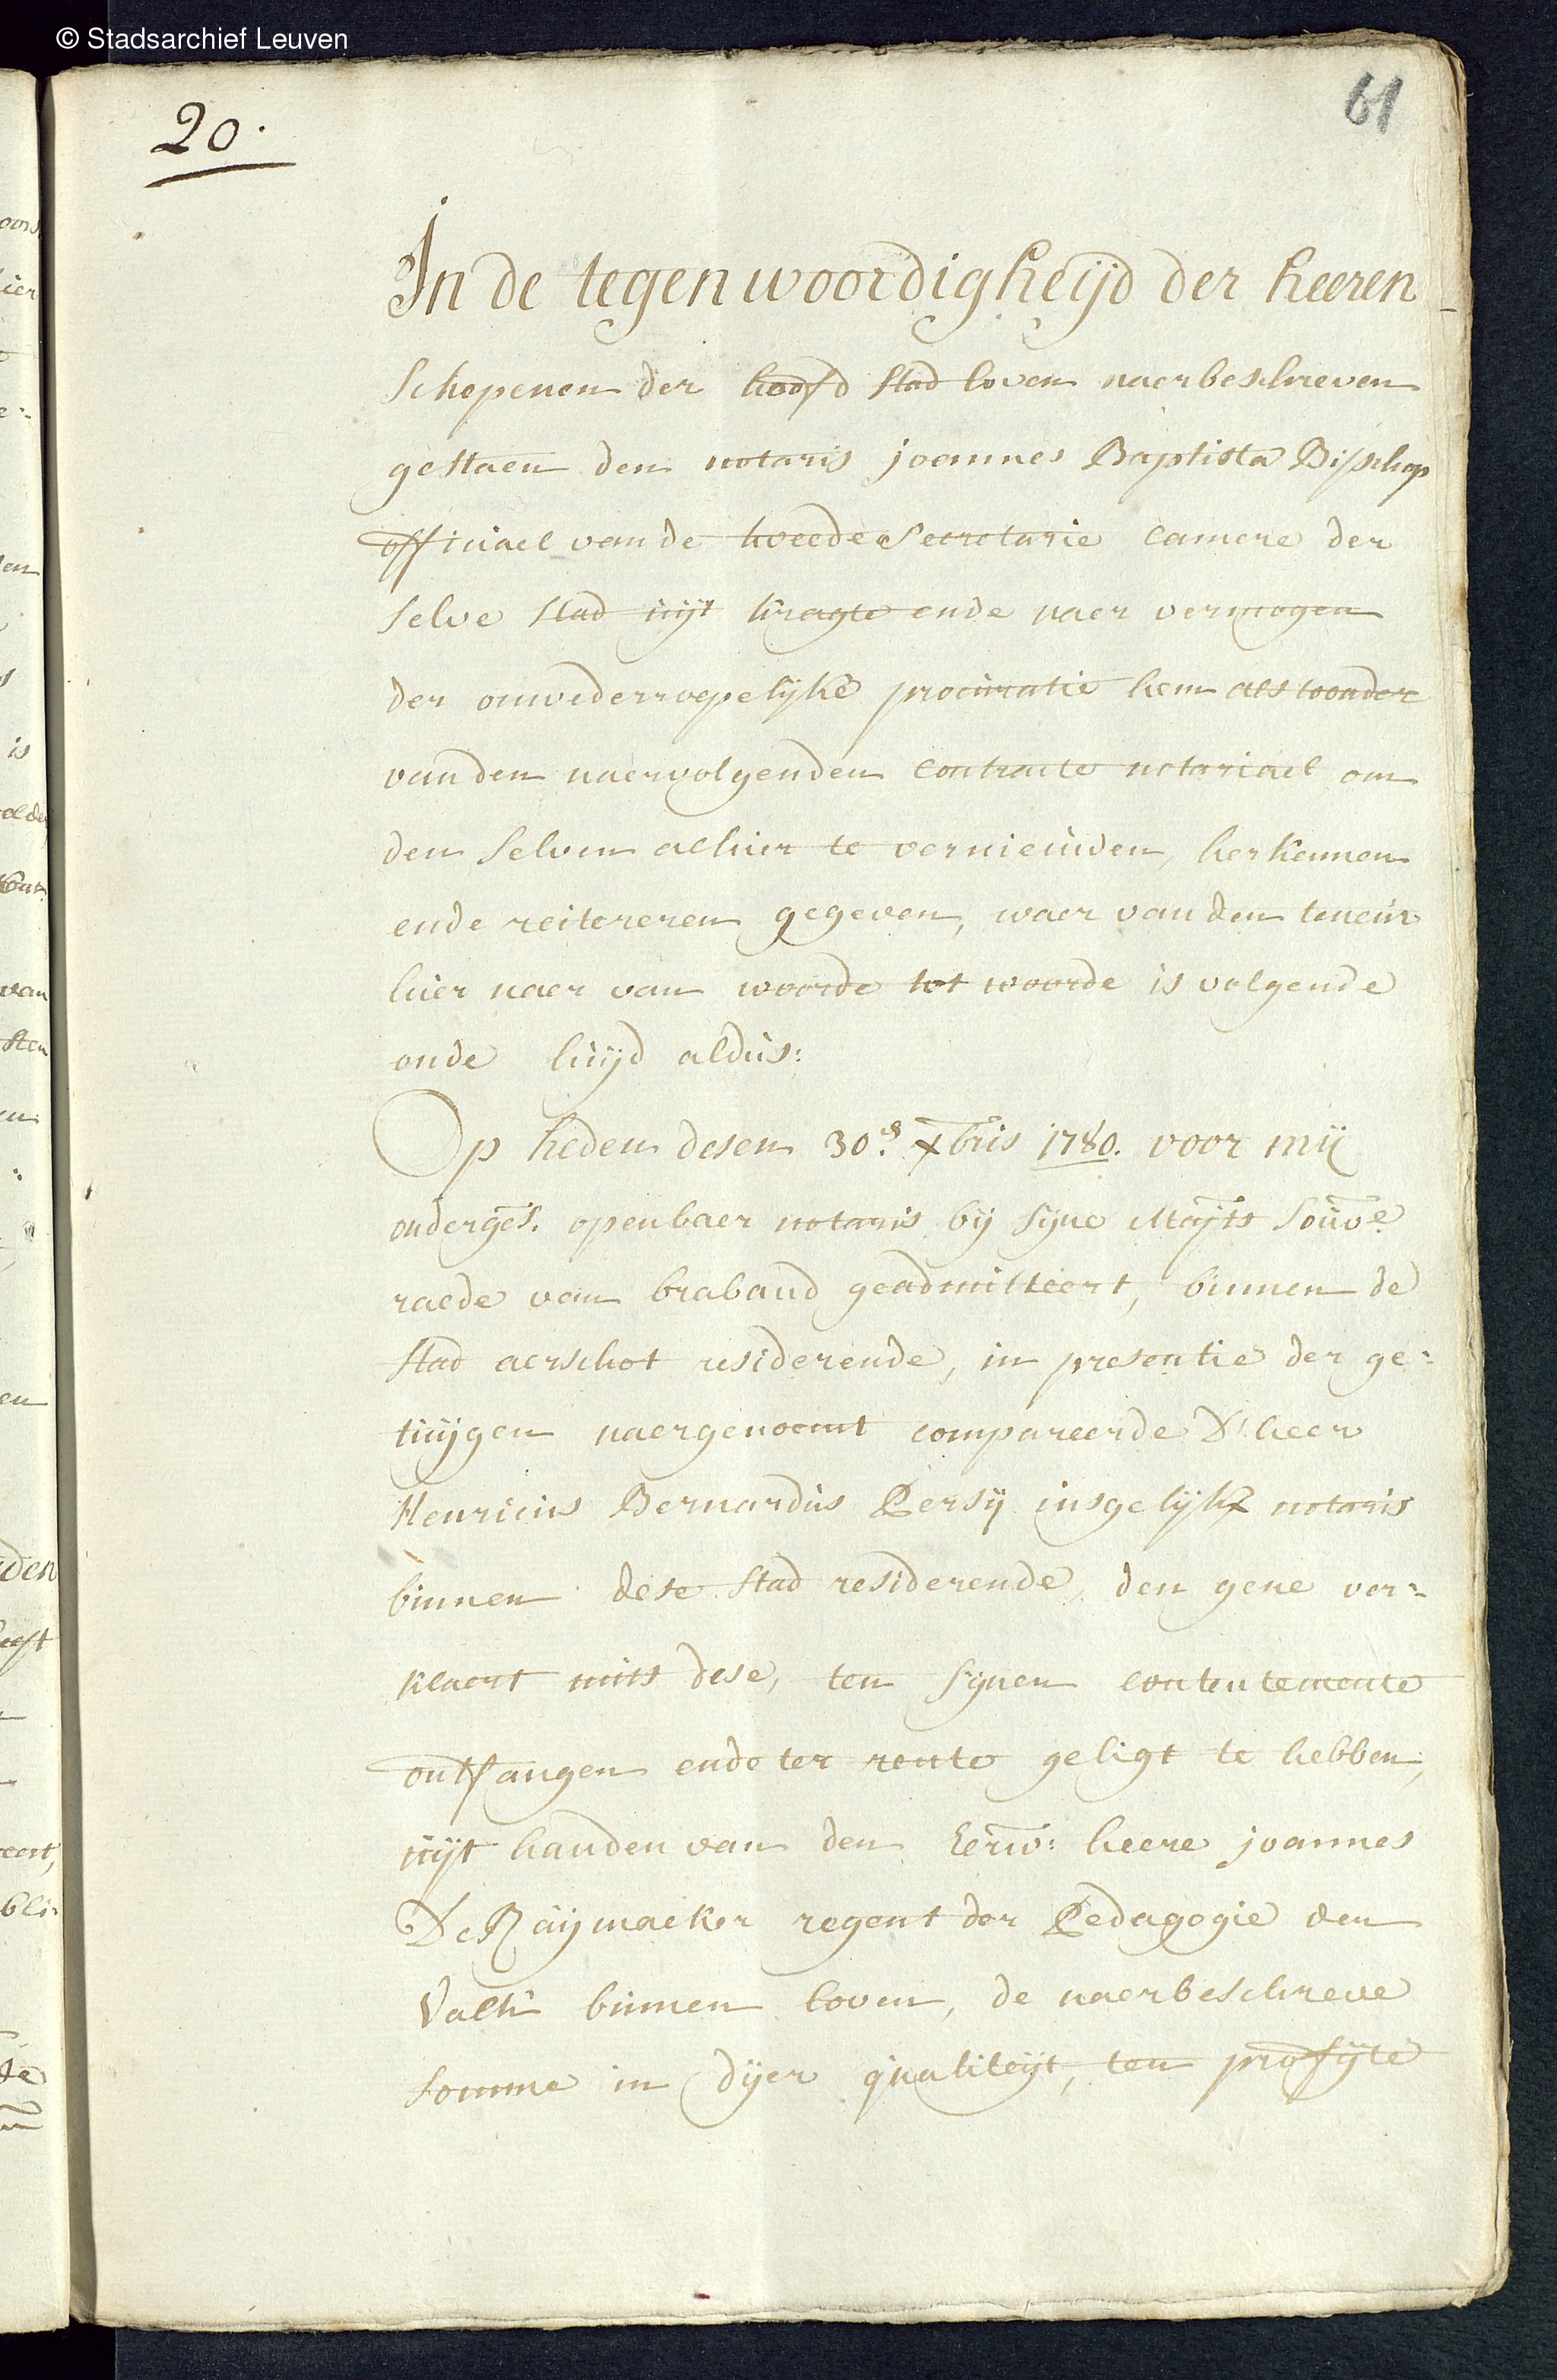 © Stadsarchief Leuven
20.
61
In de tegenwoordigheijd der heeren
schepenen der hoofd stad loven naerbeschreven
gestaen den notaris joannes Baptista Bisschop
officiael van de tweede secretarie camere der
selve stad uijt kragte ende naer vermogen
der onwederroepelijke procuratie hem als toonder
van den naervolgenden contracte notariael om
den selven alhier te vernieuwden, herkennen
ende reitereren gegeven, waer van den teneur
hier naer van woorde tot woorde is volgende
ende luijd aldus:
Op heden desen 30.e xbris 1780. voor mij
onderges. openbaer notaris bij sijne Majts Souve
raede van braband geadmitteert, binnen de
stad aerschot residerende, in presentie der ge:
tuijgen naergenoemt compareerde D'heer
Henricus Bernardus Persij insgelijkx notaris
binnen dese stad residerende, den gene ver:
klaert mits dese, ten sijnen contentemente
ontfangen ende ter rente geligt te hebben,
uijt handen van den Eerw: heere joannes
De Raijmaeker regent der Pedagogie den
Valk binnen loven, de naerbeschreve
somme in dijer qualiteijt, ten profijte